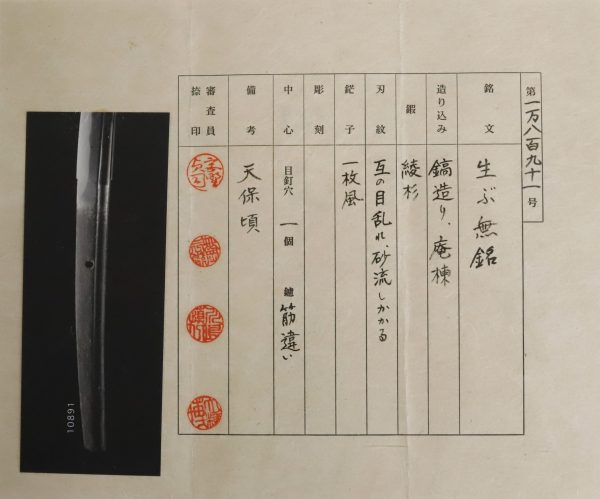 第一万八百九十一号
銘文 生ぶ無銘
造り込み 鎬造り、庵棟
鍛 綾杉
刃紋 互の目乱れ、砂流しかかる
鋩子 一枚風
彫刻
中心 目釘穴 一個 鑢 筋違い
備考 天保頃
審査員捺印
10891